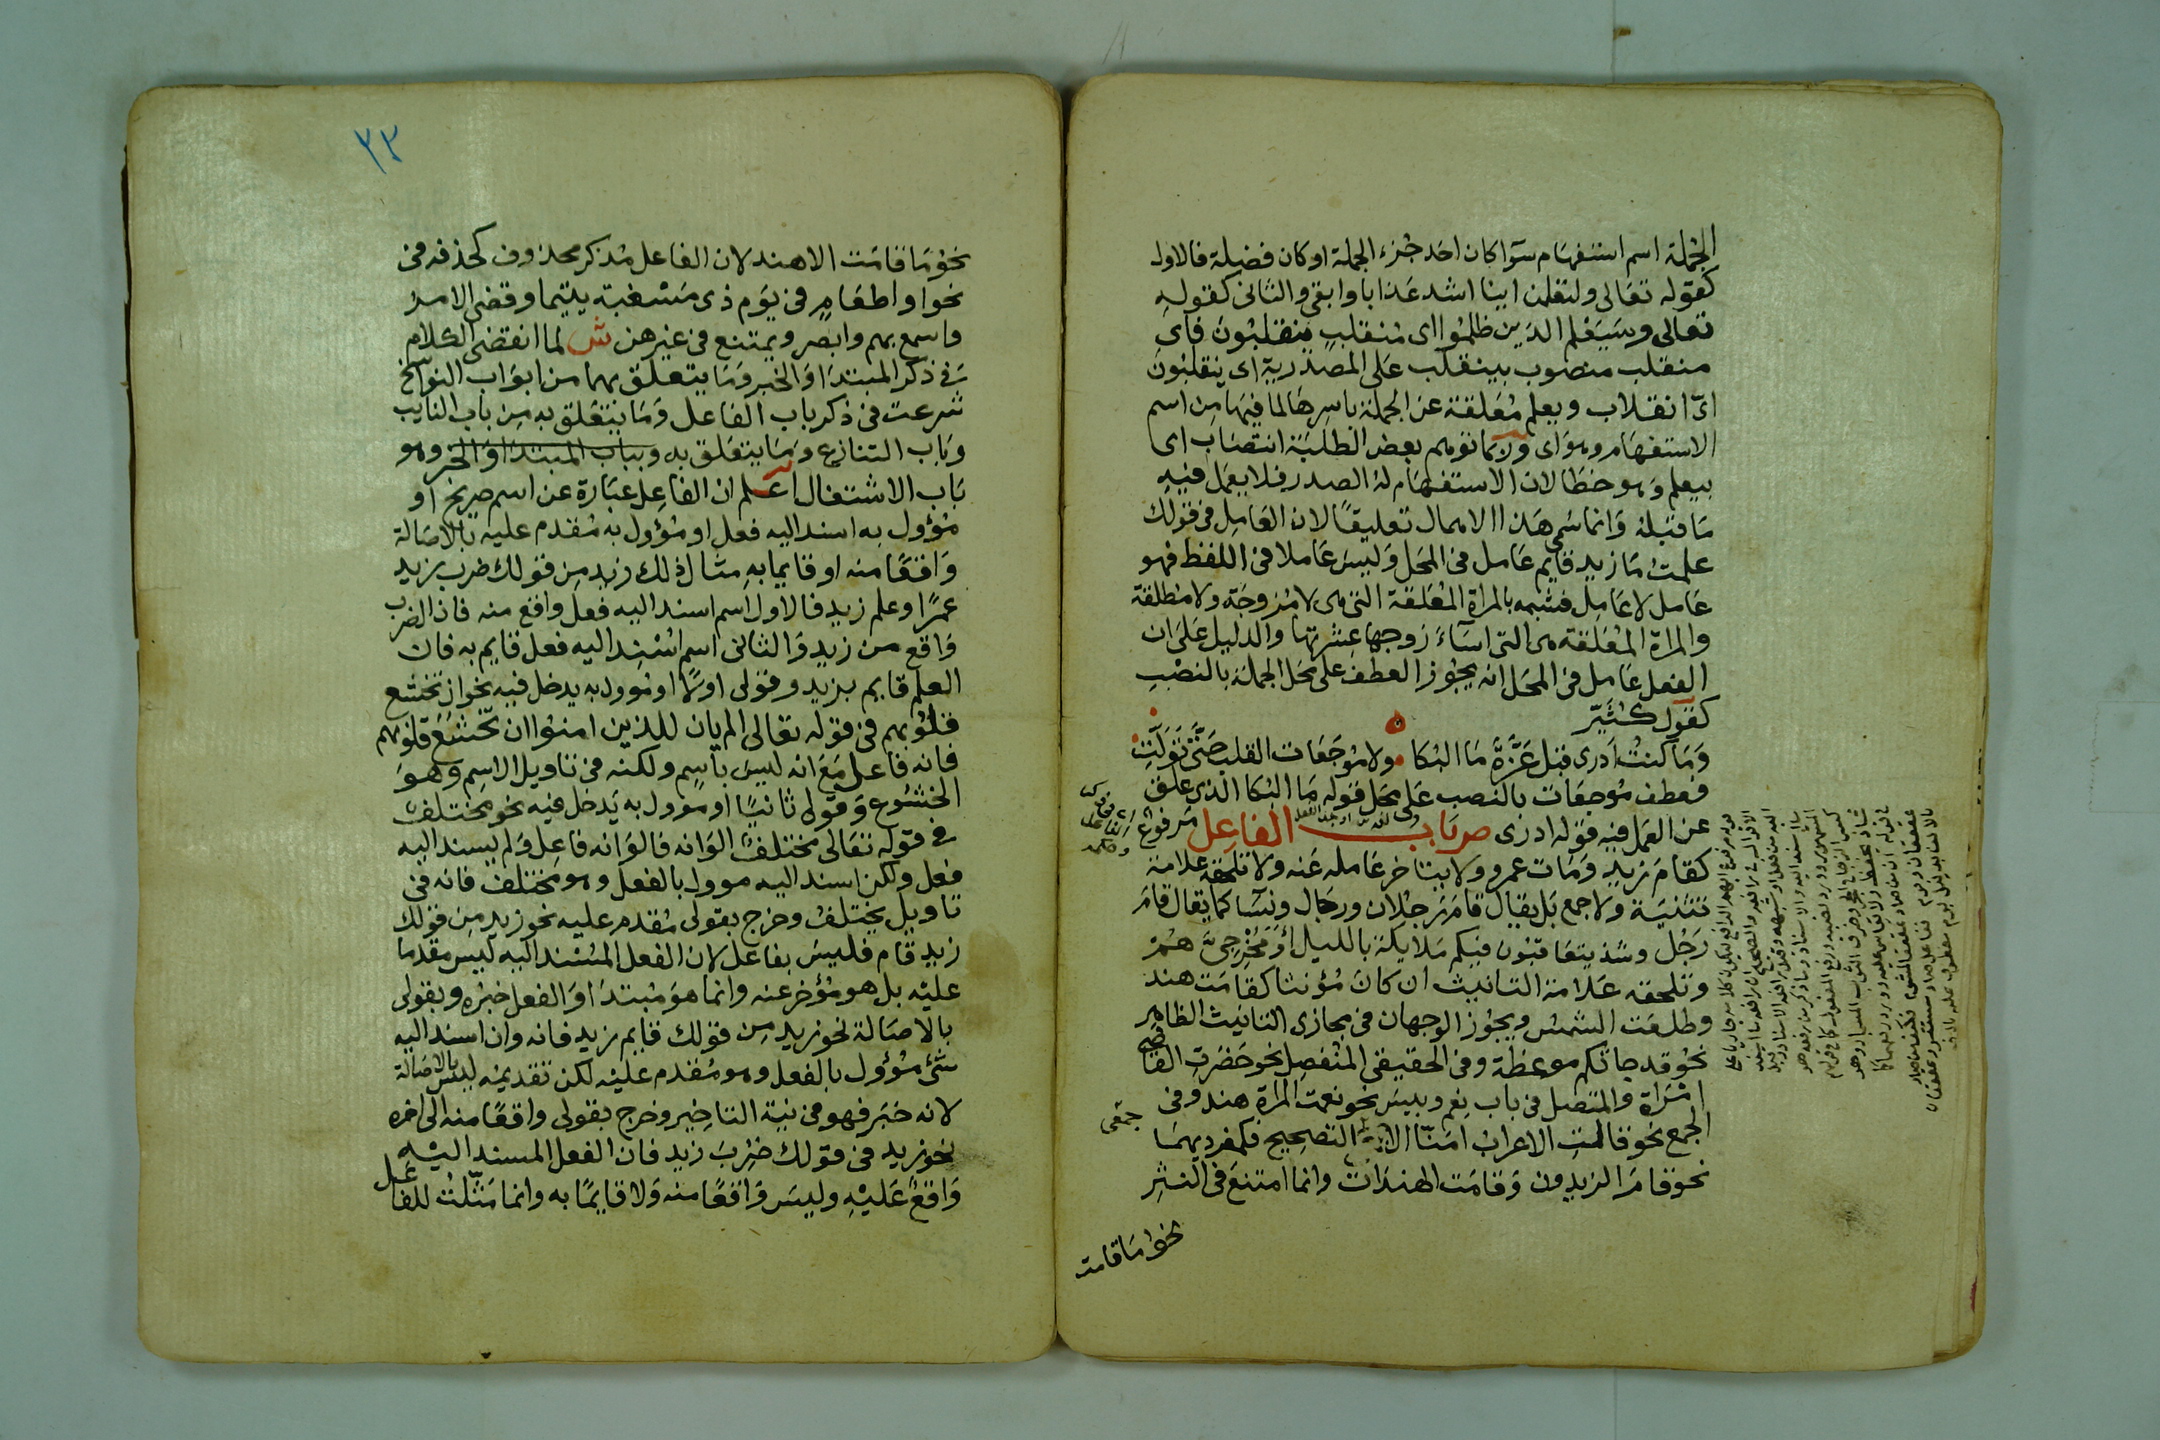 الجملة اسم استفهام سوآ كان احد جزء الجملة او كان فضيلة فالاول
كقوله تعالى ولتعلمن اينا اشد عذابا وابقى والثانى كقوله
تعالى وسيعلم الذين ظلموا اى منقلب ينقلبون فاى
منقلب منصوب بينقلب على المصدرية اى ينقلبون
اىّ انقلاب ويعلم معلقة عن الجملة باسرها لما فيها من اسم
الاستفهام وهو اى وربما توهم بعض الطلبة انتصاب اى
بيعلم وهو خطا لان الاستفهام له الصدر فلا يعمل فيه
ما قبله وانما سمى هذا الاهمال تعليقا لان العامل فى قولك
علمت ما زيد قايم عامل فى المحل وليس عاملا فى اللفظ فهو
عامل لا عامل فشبه بالمراة المعلقة التى هى لا مزوجة ولا مطلقة
والمراة المعلقة هى التى اسآء زوجها عشرتها والدليل على ان
الفعل عامل فى المحل انه يجوز العطف على محل الجملة بالنصب
كقول كثير
وما كنت ادرى قبل عزة ما البكا ولا موجعات القلب حتى تولت
فعطف موجعات بالنصب على محل قوله ما البكا الذى علق
عن العمل فيه قوله ادرى ص باب الفاعل مرفوع
كقام زيد ومات عمرو ولا يتاخر عامله عنه ولا تلحقه علامة
تثنية ولا جمع بل يقال قام رجلان ورجال ونسا كما يقال قام
رجل وشذ يتعاقبون فيكم ملايكة بالليل أو مخرجىّ هم
وتلحقه علامة التانيث ان كان مؤنثا كقامت هند
وطلعت الشمس ويجوز الوجهان فى مجازى التانيث الظاهر
نحو قد جاتكم موعظة وفى الحقيقى المنفصل نحو حضرت القاضى
امراة والمتصل فى باب نعم وبيس نحو نعمت المراة هند وفى
الجمع نحو قالت الاعراب امنّا الا جمعى التصحيح فكمفرديهما
نحو قام الزيدون وقامت الهندات وانما امتنع فى النثر
نحو ما قامت
٣٣
نحو ما قامت الا هند لان الفاعل مذكر محذوف كحذفه فى
نحو او اطعام فى يوم ذى مسغبة يتيما وقضى الامر
واسمع بهم وابصر ويمتنع فى غيرهن ش لما انقضى الكلام
فى ذكر المبتدا والخبر وما يتعلق بهما من ابواب النواسخ
شرعت فى ذكر باب الفاعل وما يتعلق به من باب النايب
وباب التنازع وما يتعلق به وبباب المبتدا والخبر وهو
باب الاشتغال اعلم ان الفاعل عبارة عن اسم صريح او
مؤول به اسند اليه فعل او مؤول به مقدم عليه بالاصالة
واقعا منه او قايما به مثال ذلك زيد من قولك ضرب زيد
عمرًا وعلم زيد فالاول اسم اسند اليه فعل واقع منه فان الضرب
واقع من زيد والثانى اسم اسند اليه فعل قايم به فان
العلم قايم بزيد وقولى اولا او مؤول به يدخل فيه نحو ان تخشع
قلوبهم فى قوله تعالى الم يان للذين امنوا ان تخشع قلوبهم
فانه فاعل مع انه ليس باسم ولكنه فى تاويل الاسم وهو
الخشوع وقولى ثانيا او مؤول به يدخل فيه نحو مختلف
فى قوله تعالى مختلف الوانه فالوانه فاعل ولم يسند اليه
فعل ولكن اسند اليه موول بالفعل وهو مختلف فانه فى
تاويل يختلف وخرج بقولى مقدم عليه نحو زيد من قولك
زيد قام فليس بفاعل لان الفعل المسند اليه ليس مقدما
عليه بل هو مؤخر عنه وانما هو مبتدا والفعل خبره وبقولى
بالاصالة نحو زيد من قولك قايم زيد فانه وان اسند اليه
شئ مؤول بالفعل وهو مقدم عليه لكن تقديمه ليس بالاصالة
لانه خبر فهو فى نية التاخير وخرج بقولى واقعا منه الى اخره
نحو زيد فى قولك ضرب زيد فان الفعل المسند اليه
واقع عليه وليس واقعا منه ولا قايما به وانما مثلت للفاعل